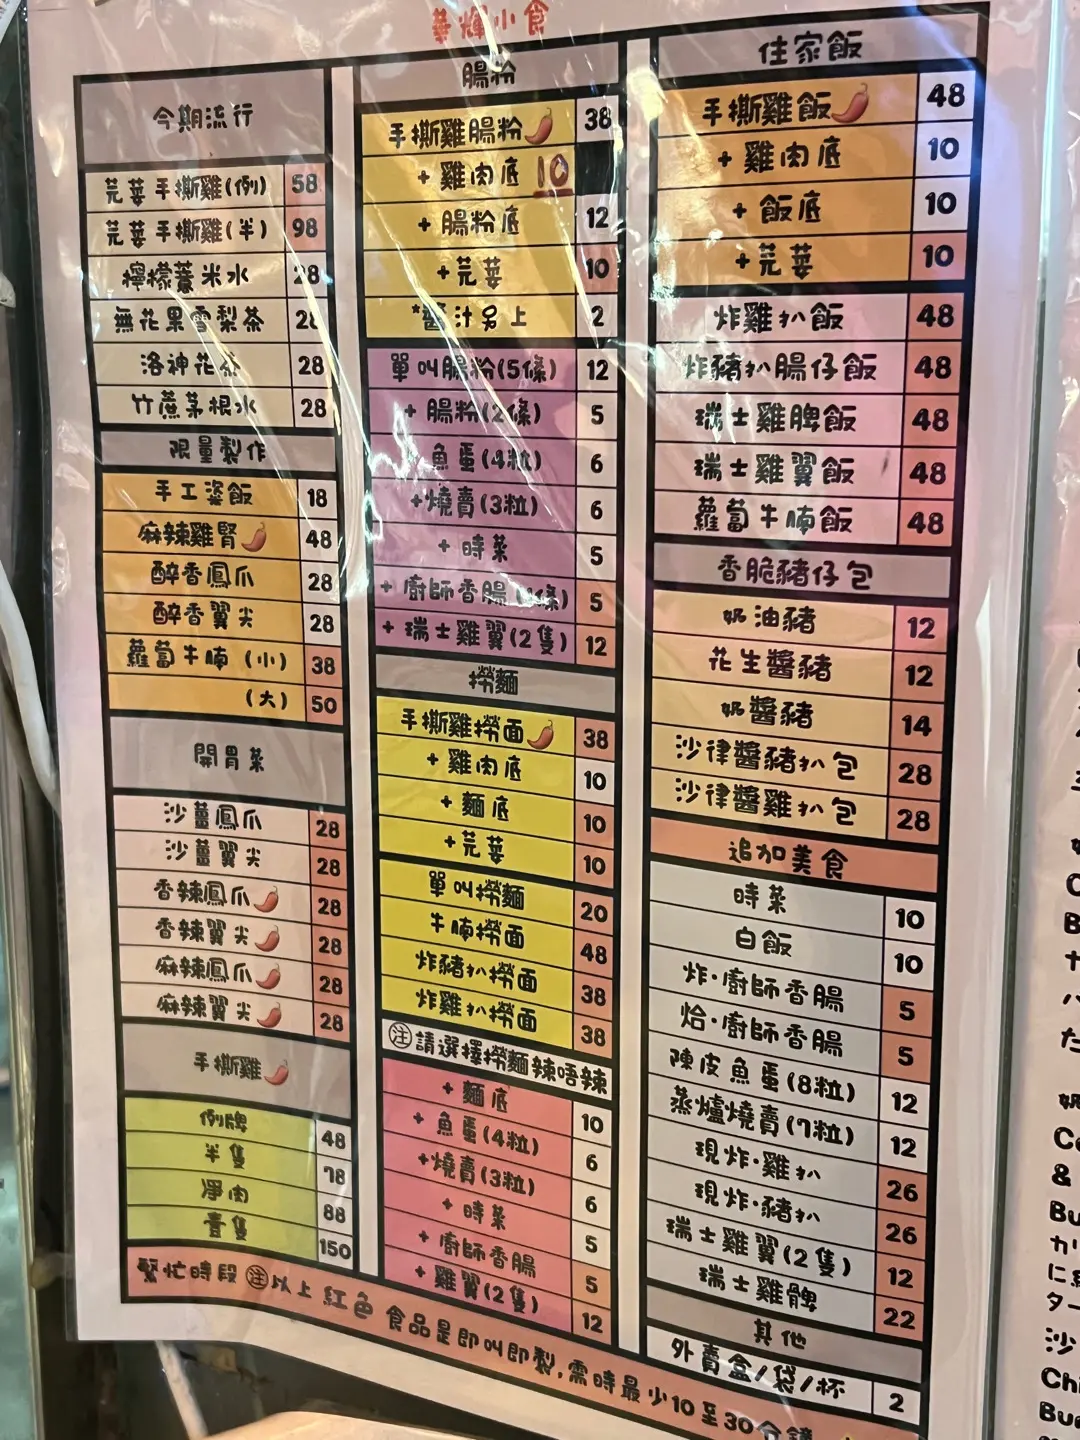 華輝小食
今期流行
芫荽手撕雞(例) 58
芫荽手撕雞(半) 98
檸檬薏米水 28
無花果雪梨茶 28
洛神花茶 28
竹蔗茅根水 28
限量製作
手工粢飯 18
麻辣雞腎 48
醉香鳳爪 28
醉香翼尖 28
蘿蔔牛腩 (小) 38
(大) 50
開胃菜
沙薑鳳爪 28
沙薑翼尖 28
香辣鳳爪 28
香辣翼尖 28
麻辣鳳爪 28
麻辣翼尖 28
手撕雞
例牌 48
半隻 78
淨肉 88
壹隻 150
腸粉
手撕雞腸粉 38
+ 雞肉底 10
+ 腸粉底 12
+芫荽 10
*醬汁另上 2
單叫腸粉(5條) 12
+ 腸粉(2條) 5
+ 魚蛋(4粒) 6
+燒賣(3粒) 6
+ 時菜 5
+ 廚師香腸 條) 5
+ 瑞士雞翼(2隻) 12
撈麵
手撕雞撈面 38
+ 雞肉底 10
+ 麵底 10
+芫荽 10
單叫撈麵 20
牛腩撈面 48
炸豬扒撈面 38
炸雞扒撈面 38
註請選擇撈麵辣唔辣
+ 麵底 10
+ 魚蛋(4粒) 6
+燒賣(3粒) 6
+時菜 5
+ 廚師香腸 5
+ 雞翼(2隻) 12
住家飯
手撕雞飯 48
+ 雞肉底 10
+ 飯底 10
+芫荽 10
炸雞扒飯 48
炸豬扒腸仔飯 48
瑞士雞髀飯 48
瑞士雞翼飯 48
蘿蔔牛腩飯 48
香脆豬仔包
奶油豬 12
花生醬豬 12
奶醬豬 14
沙律醬豬扒包 28
沙律醬雞扒包 28
追加美食
時菜 10
白飯 10
炸·廚師香腸 5
烚·廚師香腸 5
陳皮魚蛋(8粒) 12
蒸爐燒賣(7粒) 12
現炸·雞扒 26
現炸·豬扒 26
瑞士雞翼(2隻) 12
瑞士雞髀 22
其他
外賣盒/袋/杯 2
繁忙時段 註以上 紅色 食品是即叫即製,需時最少10至30分鐘